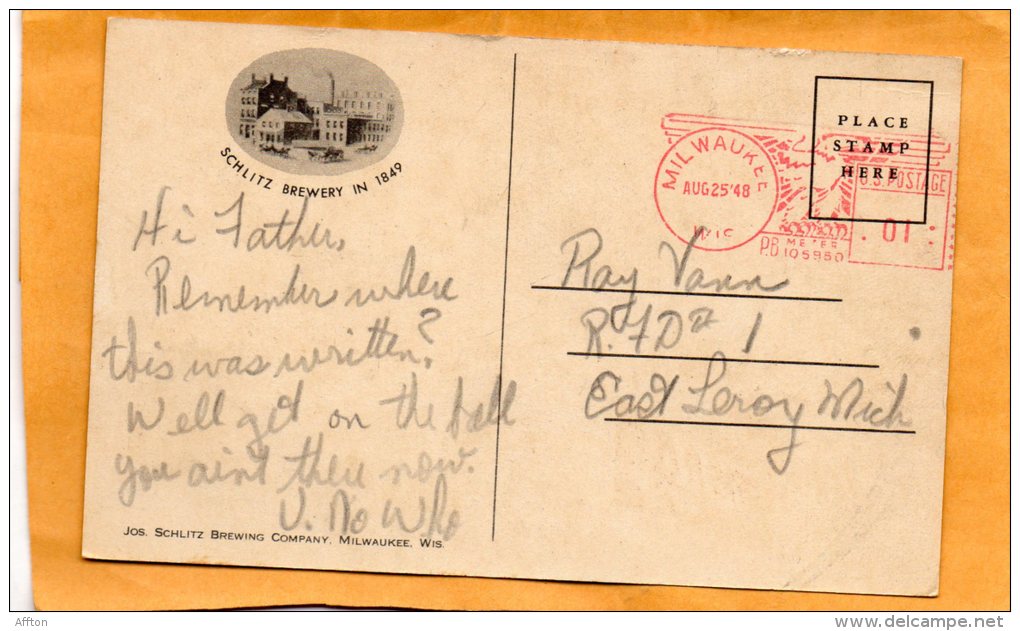 SCHLITZ BREWERY IN 1849
Hi Father,
Remember where
this was written?
Well get on the ball
you aint there now.
U. No Who
JOS. SCHLITZ BREWING COMPANY, MILWAUKEE, WIS.
PLACE
STAMP
HERE
MILWAUKEE
AUG25'48
WIS
P.B METER
105950
U.S. POSTAGE
.01
Ray Vann
R.FD# 1
East Leroy Mich
Affton
www.delcampe.net